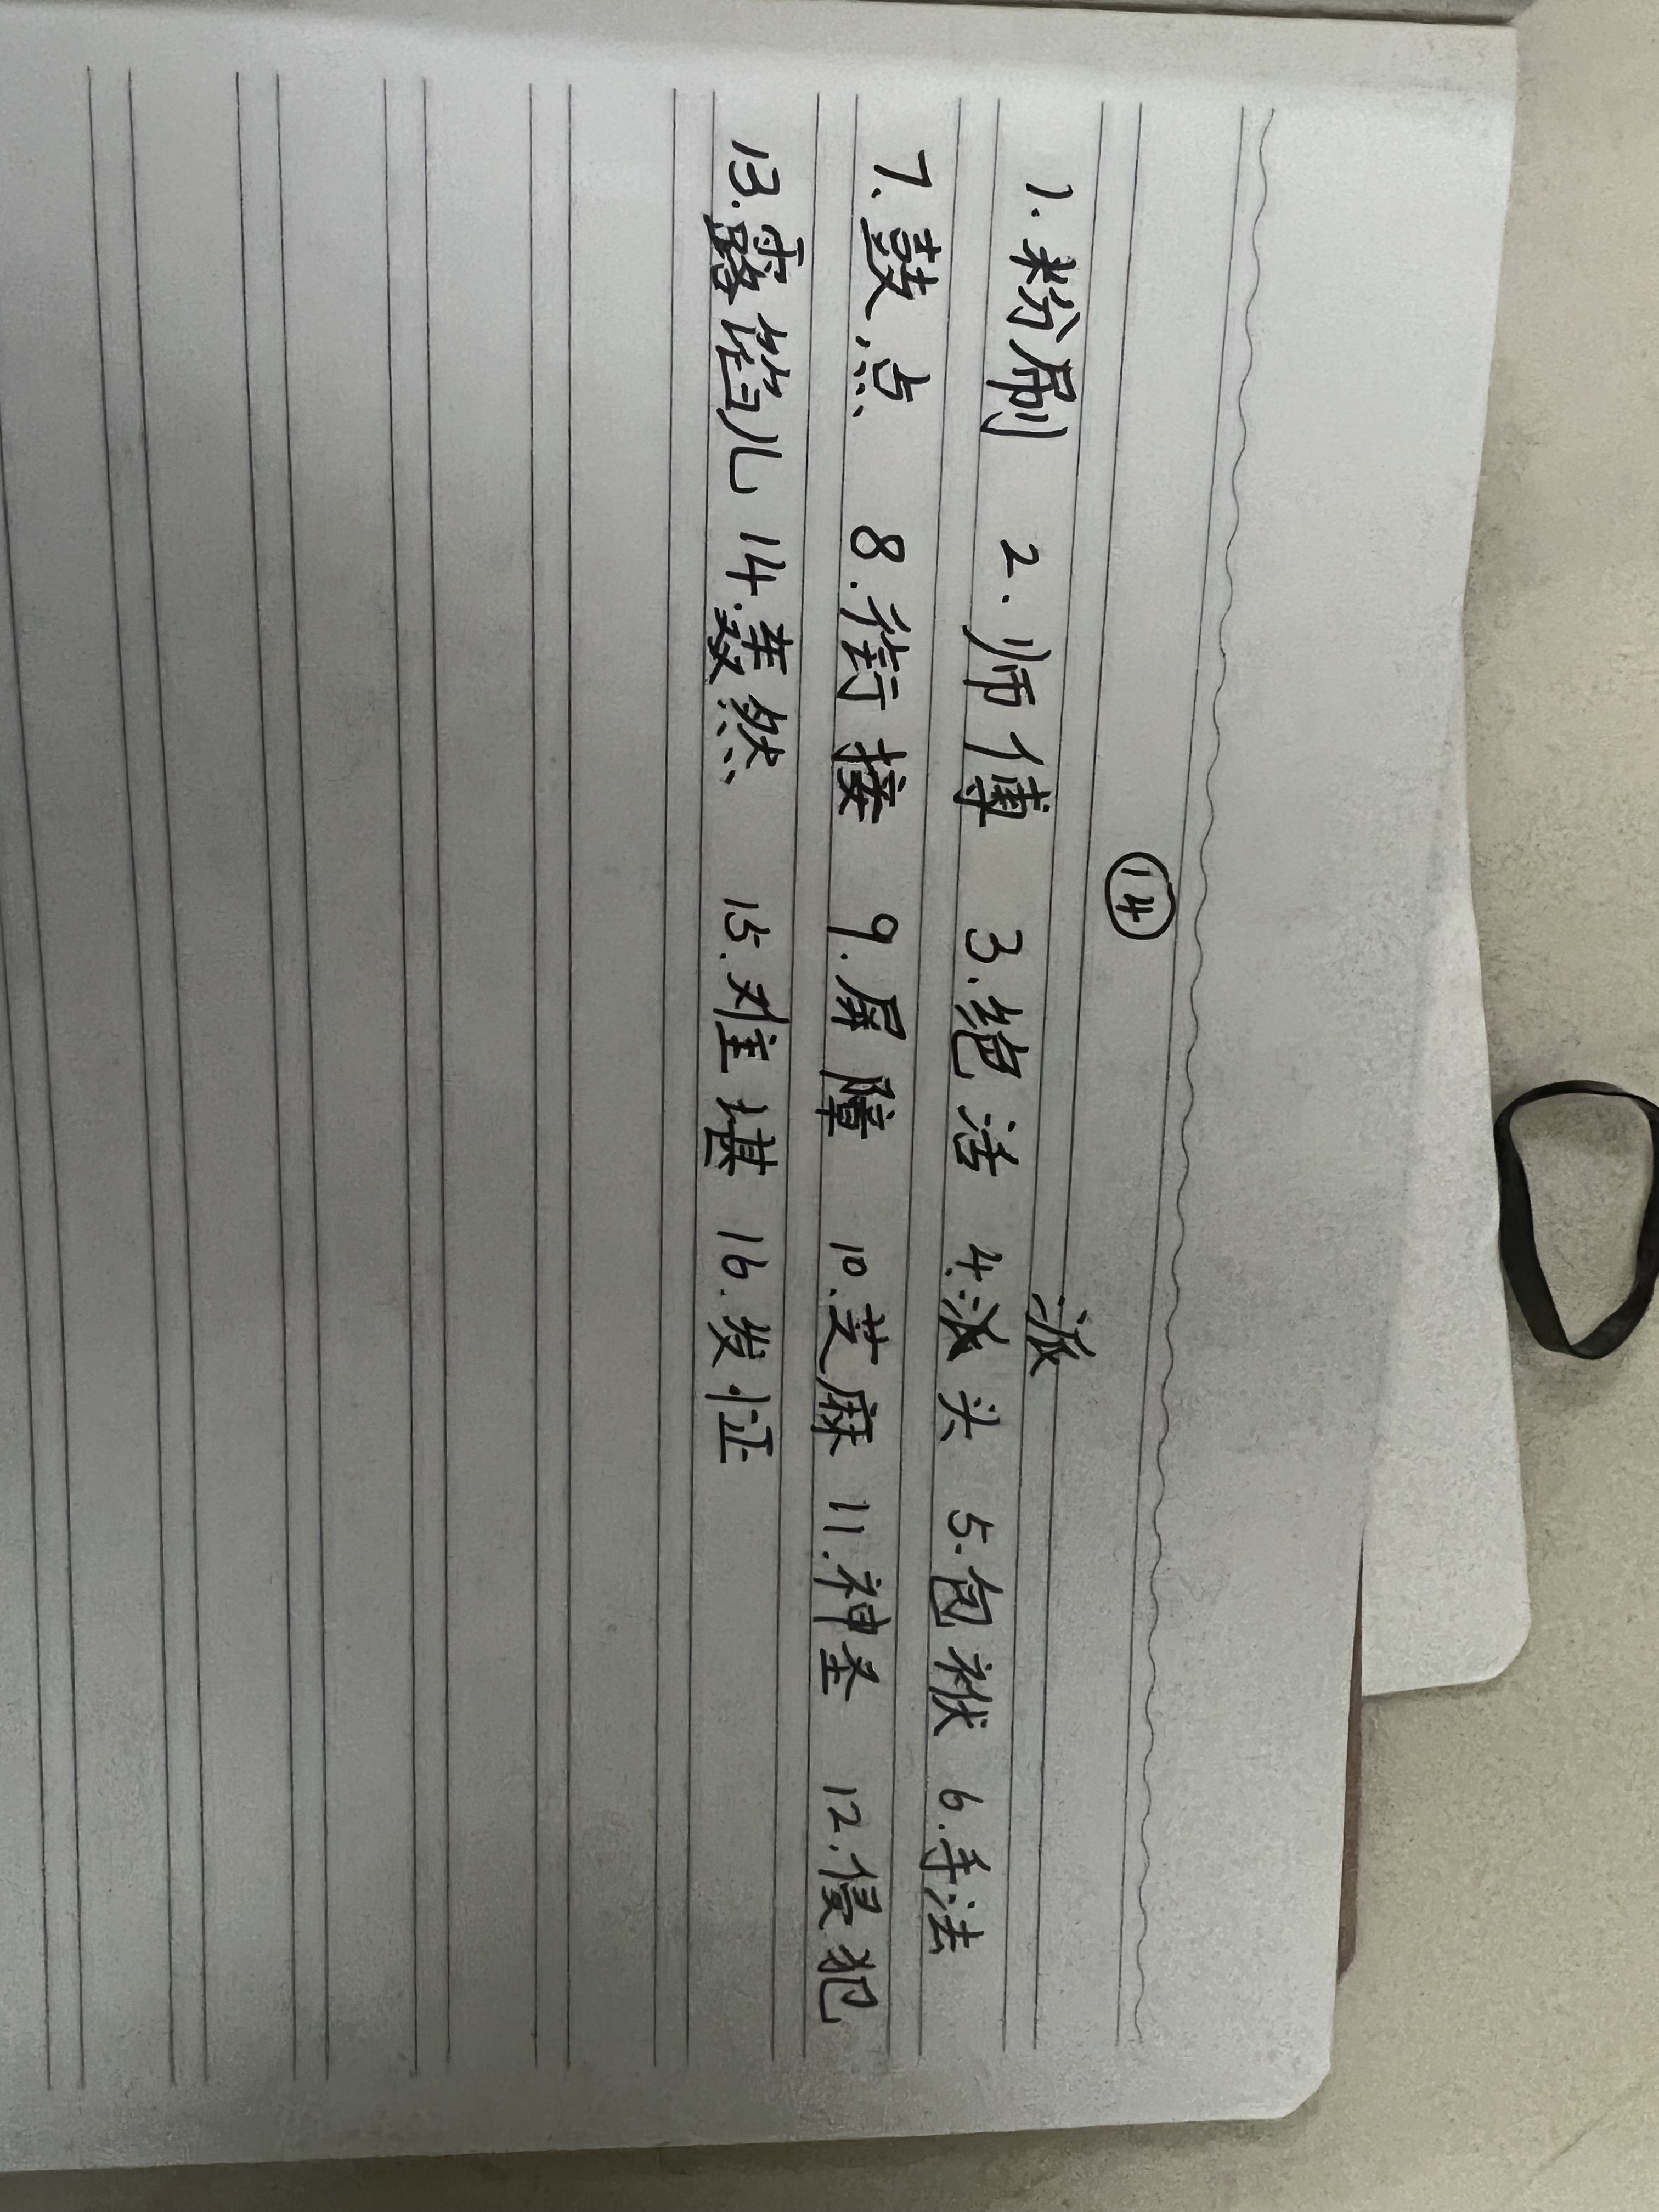 ⑭
派
1.粉刷 2.师傅 3.绝活 4.派头 5.包袱 6.手法
7.鼓点 8.衔接 9.屏障 10.芝麻 11.神圣 12.侵犯
13.露馅儿 14.轰然 15.难堪 16.发怔